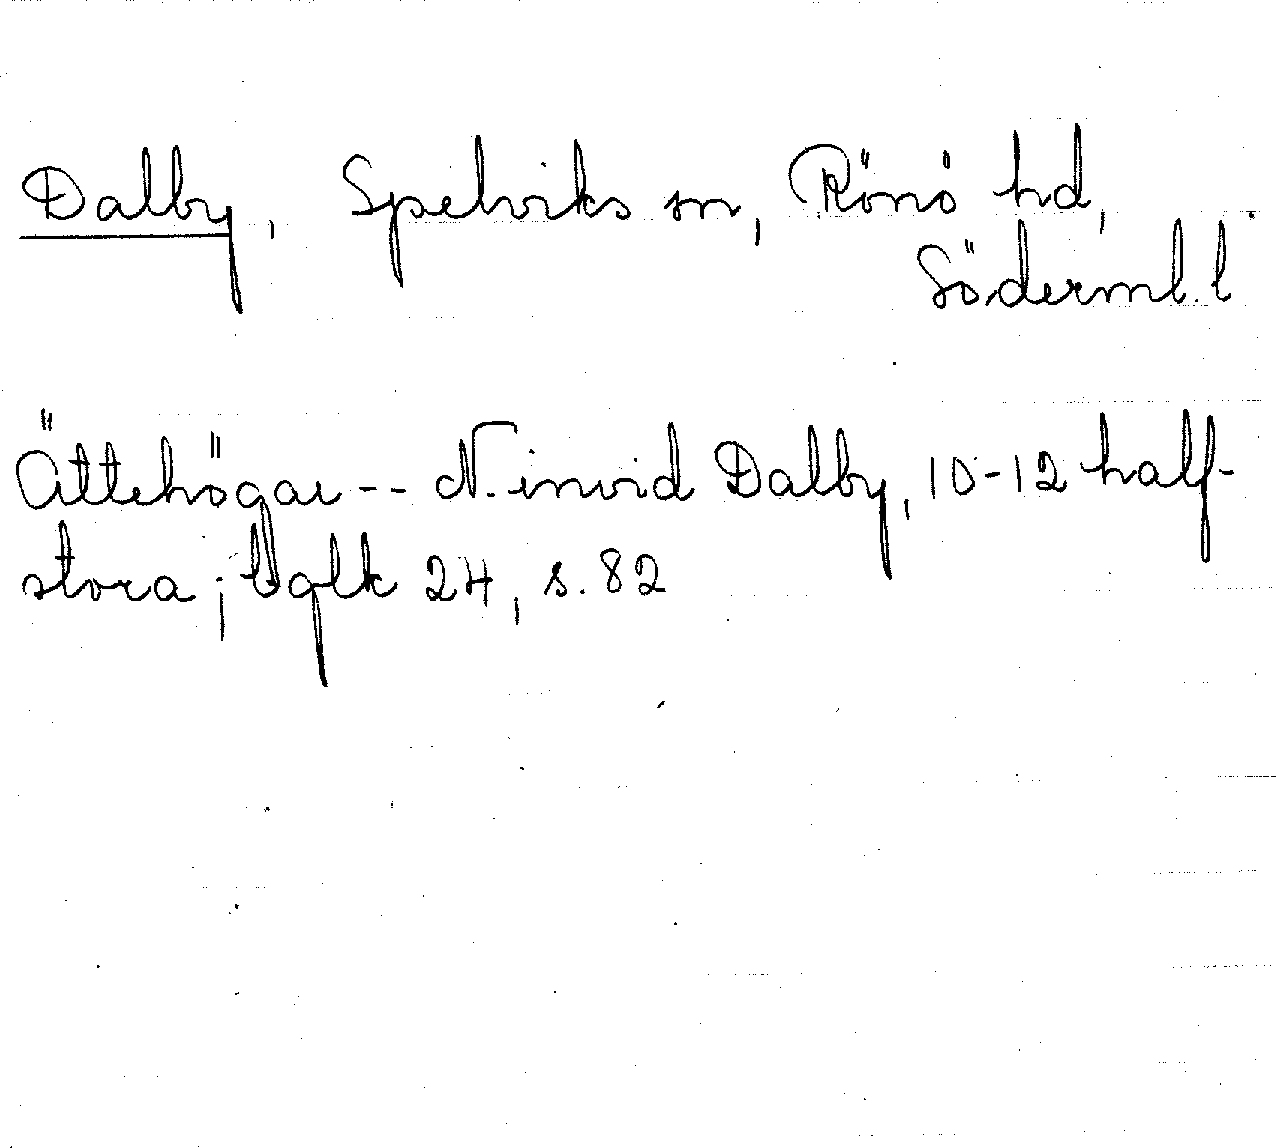 Dalby, Spelviks sn, Rönö hd,
Söderml. l
Ättehögar -- N. invid Dalby, 10-12 half-
stora; Uglk 24, s. 82